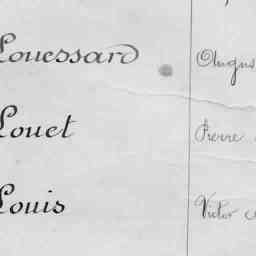 Louessard Augus
Louet Pierre
Louis Victor